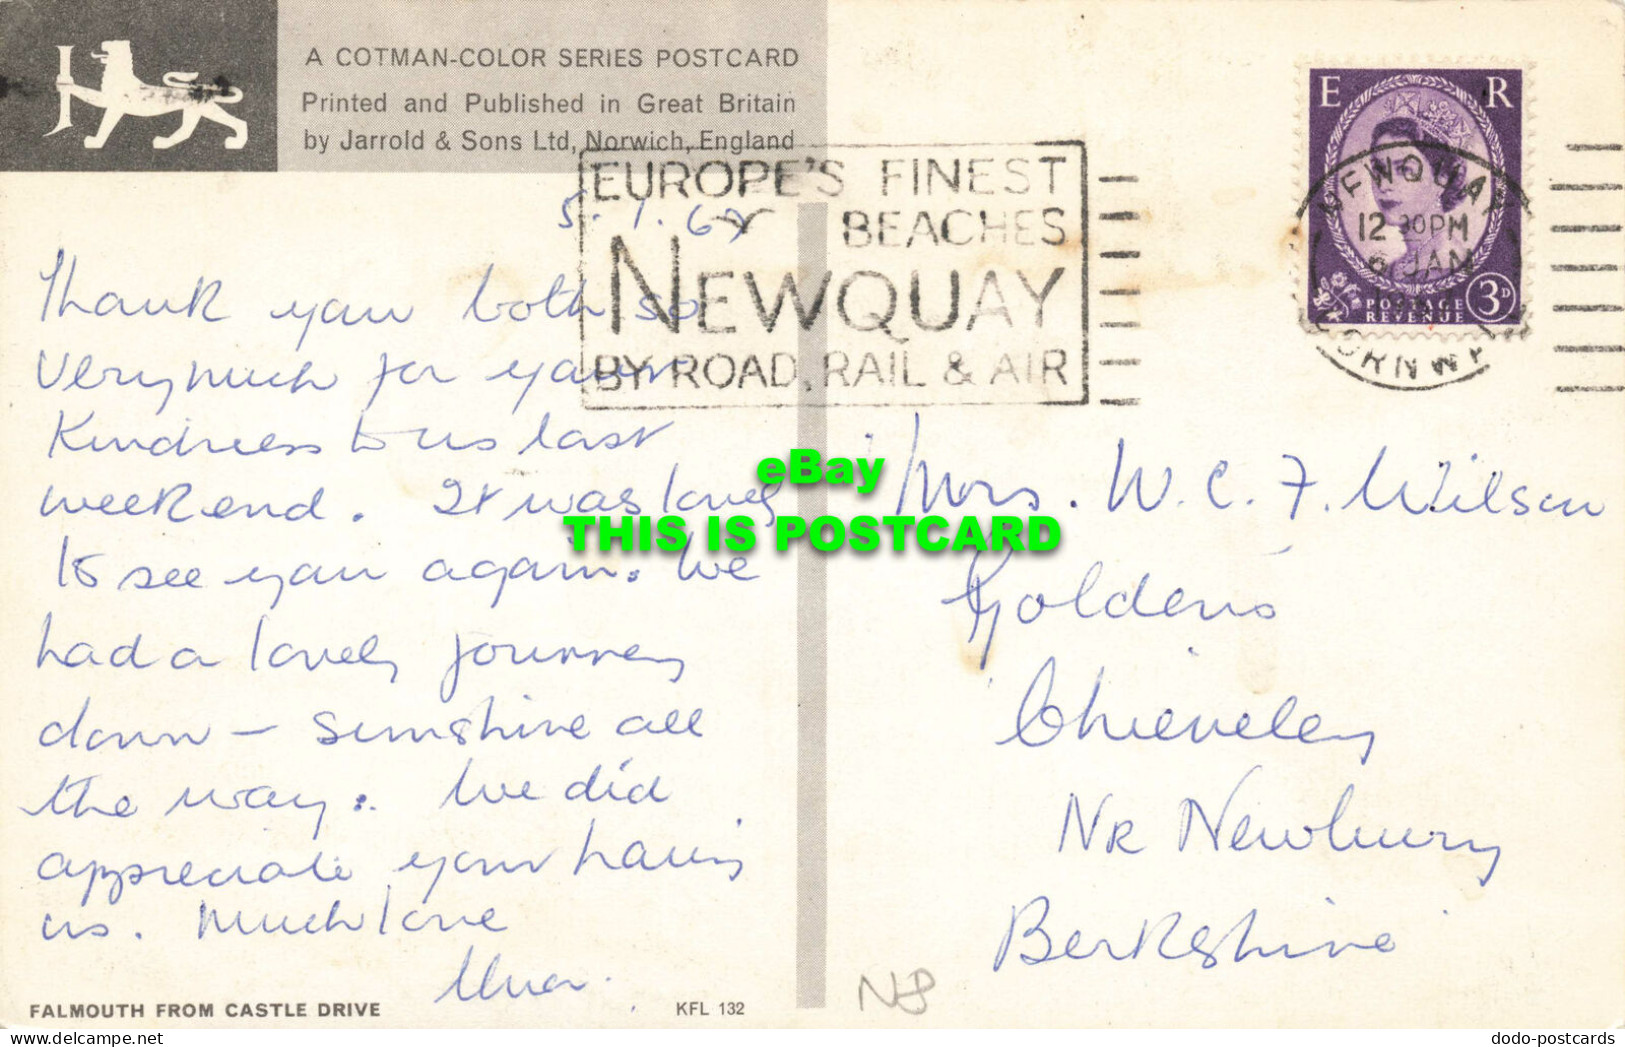 A COTMAN-COLOR SERIES POSTCARD
Printed and Published in Great Britain
by Jarrold & Sons Ltd, Norwich, England
EUROPE'S FINEST
BEACHES
NEWQUAY
BY ROAD, RAIL & AIR
E R
NEWQUAY
12 30PM
6 JAN
CORNWALL
POSTAGE
REVENUE
3D
5.1.67
Thank you both so
very much for your
Kindness to us last
weekend. It was lovely
to see you again. We
had a lovely journey
down – sunshine all
the way. We did
appreciate your having
us. Much love
Una.
Mrs. W. C. F. Wilson
Goldens
Chieveley
NR Newbury
Berkshire
eBay
THIS IS POSTCARD
FALMOUTH FROM CASTLE DRIVE
KFL 132
N8
dodo-postcards